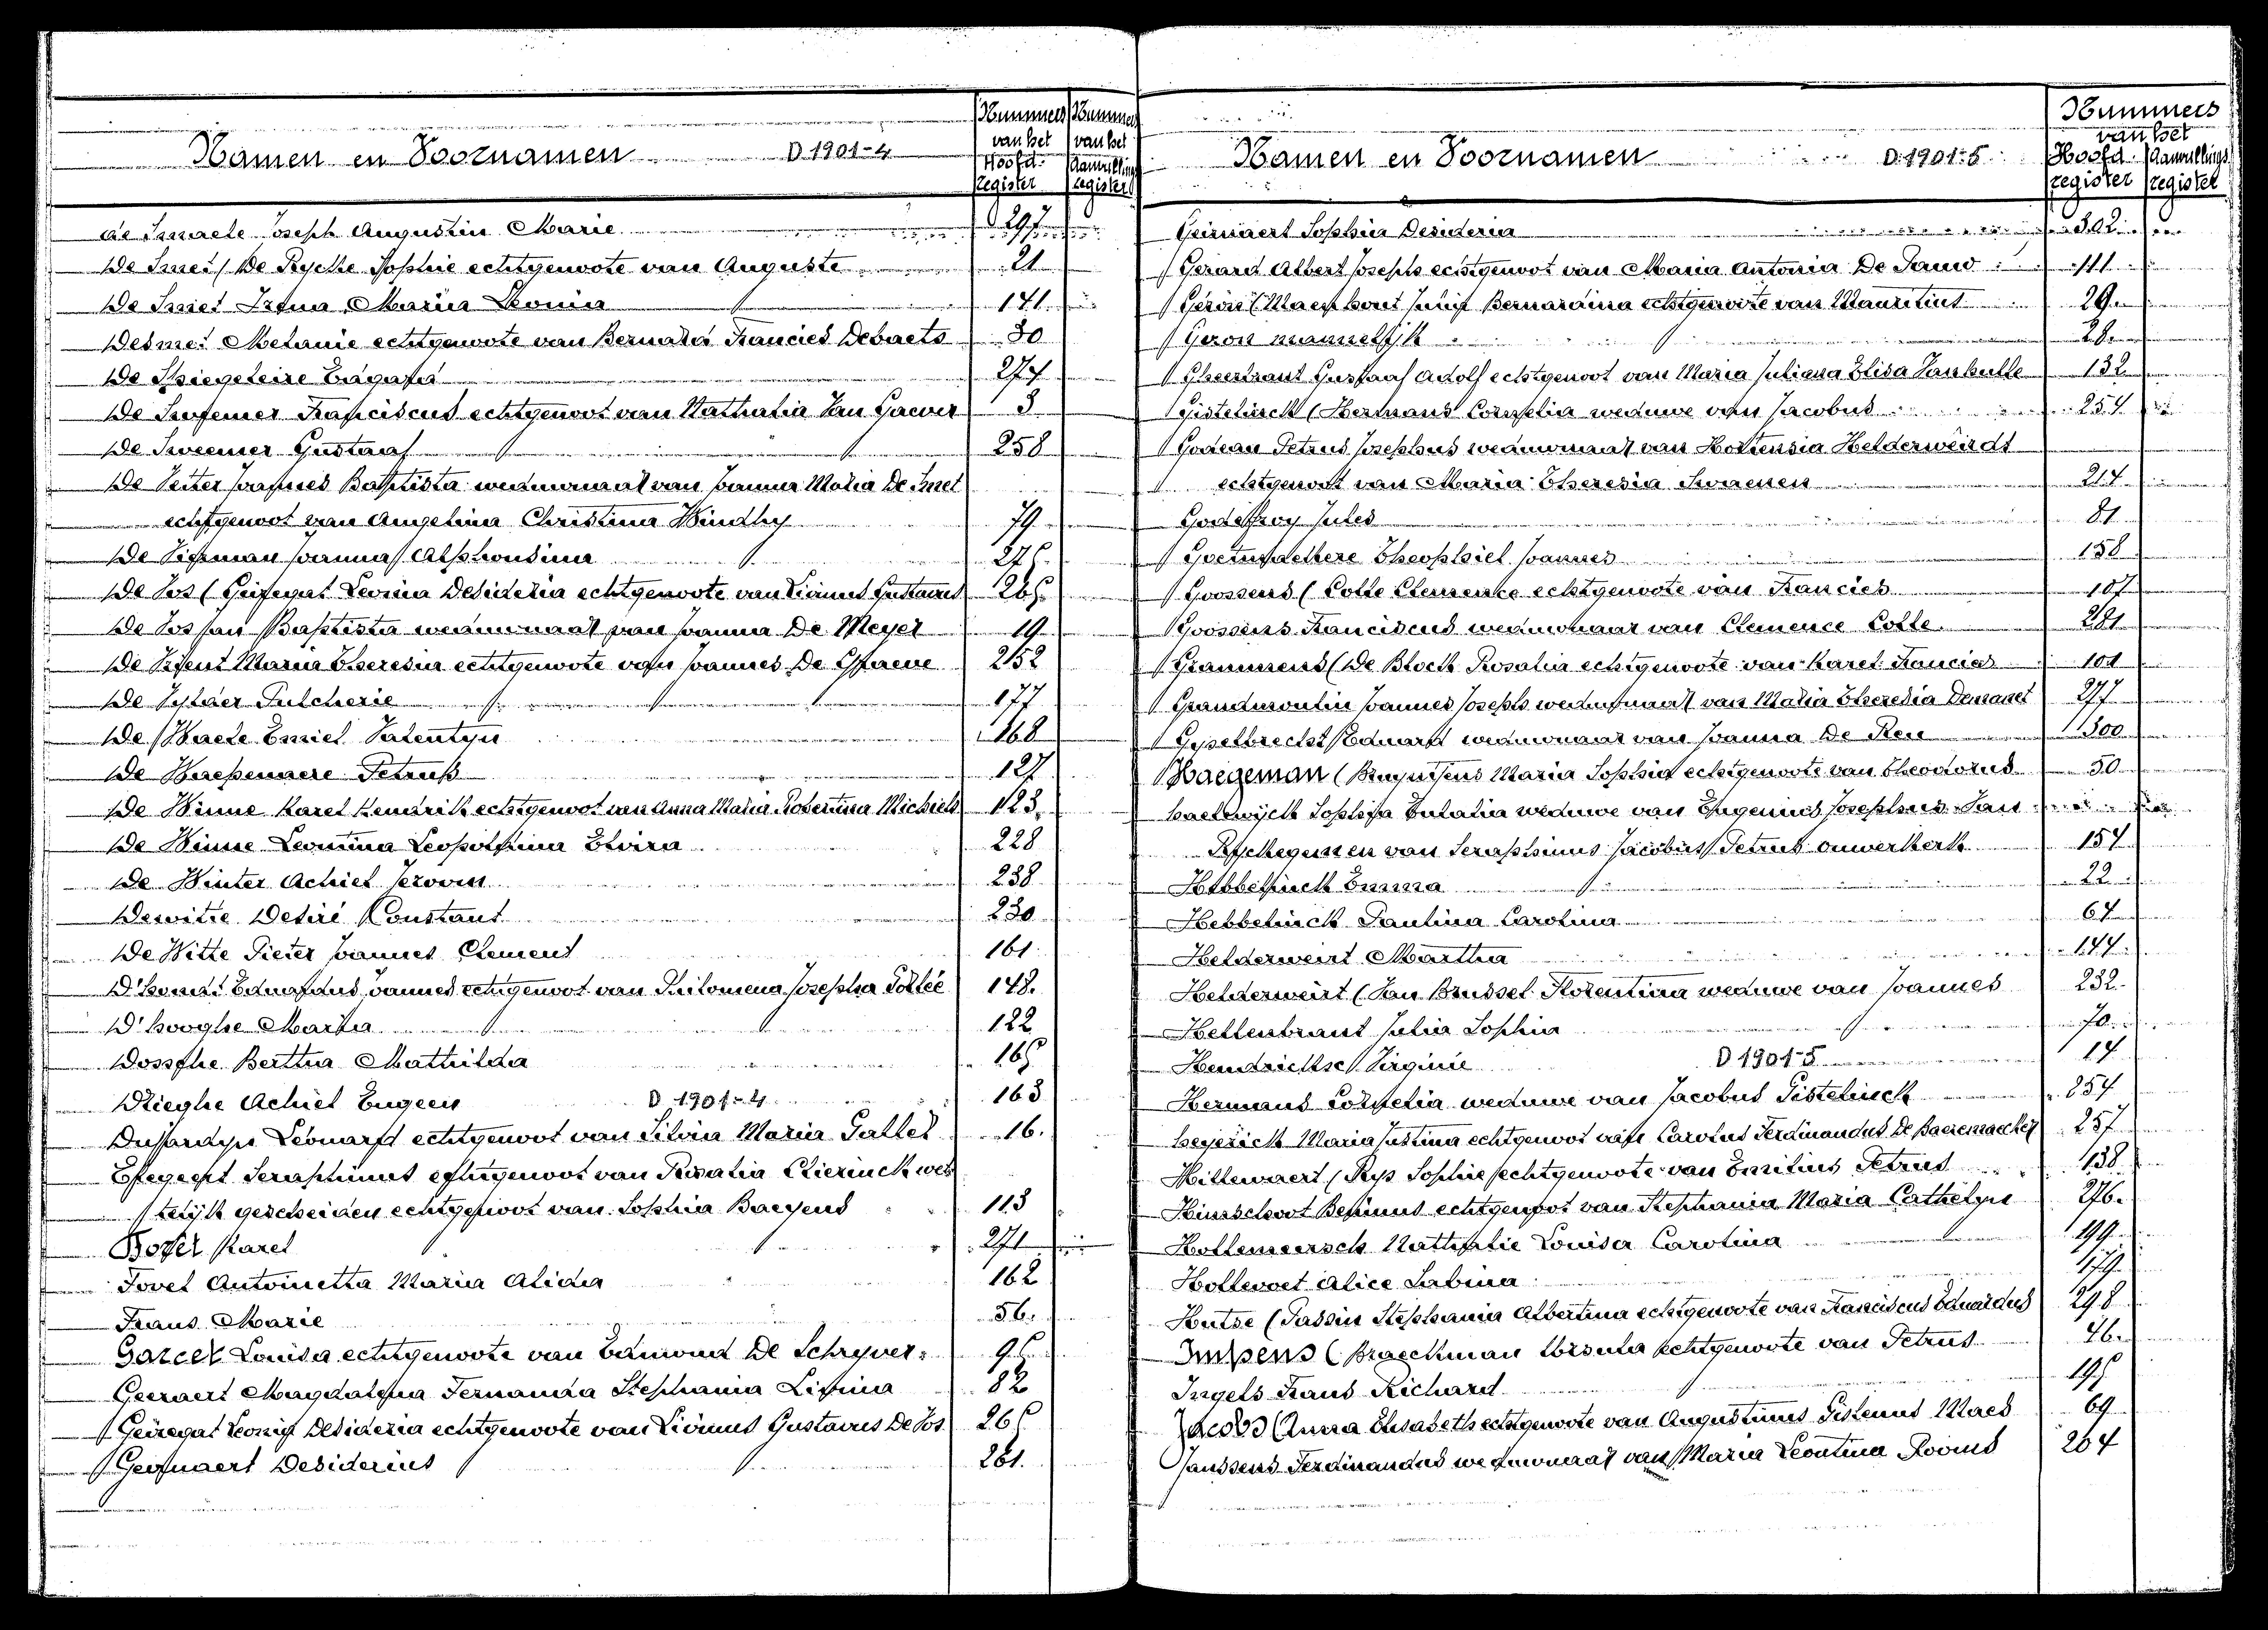 Namen en Voornamen D 1901-4
Nummers van het Hoofd-register
Nummers van het Aanvullings register
de Smaele Joseph Augustin Marie 297
De Smet (De Rycke Sophie echtgenoote van Auguste 21
De Smet Irena Maria Leonia 171
Desmet Melanie echtgenoote van Bernard Francies Debaets 30
De Spiegeleire Eugafia 274
De Sutemer Franciscus echtgenoot van Nathalia Van Gaever 3
De Sweemer Gustaaf 258
De Vetter Joannes Baptista weduwnaar van Joanna Maria De Smet
echtgenoot van Angelina Christina Windhy 79
De Vigman Joanna Alphonsina 276
De Vos (Geiregat Leonia Desideria echtgenoote van Livinus Gustavus 265
De Vos Jan Baptista weduwnaar van Joanna De Meyer 19
De Vriend Maria Theresia echtgenoote van Joannes De Graeve 252
De Vylder Pulcherie 177
De Waele Emiel Valentyn 168
De Waepenaere Petrus 127
De Winne Karel Hendrik echtgenoot van Anna Maria Robertina Michiels 123
De Winne Leontina Leopoldina Elvira 228
De Winter Achiel Jeroom 238
Dewitte Desiré Constant 230
De Witte Pieter Joannes Clement 161
D'hondt Eduardus Joannes echtgenoot van Philomena Josepha Pollée 148
D'hooghe Maria 122
Dossche Bertha Mathilda 165
Drieghe Achiel Eugeen D 1901-4 163
Dujardyn Leonard echtgenoot van Silvia Maria Gallet 16
Effegegt Seraphinus echtgenoot van Rosalia Clierinck wet
telijk gescheiden echtgenoot van Sophia Baeyens 113
Boyer Karel 271
Fovel Antoinetta Maria Alida 162
Frans Marie 56
Garcet Louisa echtgenoote van Edmond De Schryver 96
Geeraert Magdalena Fernanda Stephania Livina 82
Geiregat Leonia Desideria echtgenoote van Livinus Gustavus De Vos 265
Geirnaert Desiderius 261
Namen en Voornamen D.1901-5
Nummers van het
Hoofd register Aanvullings register
Geirnaert Sophia Desideria 302
Gerard Albert Joseph echtgenoot van Maria Antonia De Pauw 111
Geron (Maenhout Julia Bernardina echtgenoote van Mauritius 29
Geron mannelijk 28
Gheerbrant Gustaaf Adolf echtgenoot van Maria Juliana Elisa Vanhulle 132
Gistelinck (Hermans Cornelia weduwe van Jacobus 254
Godeau Petrus Josephus weduwnaar van Hortensia Helderweirdt
echtgenoot van Maria Theresia Swaenen 214
Godeffroy Jules 81
Goetinpethere Theophiel Joannes 158
Goossens (Colle Clemence echtgenoote van Francies 107
Goossens Franciscus weduwnaar van Clemence Colle 281
Grammens (De Block Rosalia echtgenoote van Karel Francies 101
Grandmoulin Joannes Joseph weduwnaar van Maria Theresia Demanet 277
Gyselbrecht Eduard weduwnaar van Joanna De Reu 300
Haegeman (Bruynsens Maria Sophia echtgenoote van Theodorus 50
haelewyck Sophia Eulalia weduwe van Eugenius Josephus Van
Ryckegunen van Seraphinus Jacobus Petrus onwerkerk 157
Hebbelinck Emma 22
Hebbelinck Paulina Carolina 67
Helderweirt Martha 144
Helderweirt (Van Brussel Florentina weduwe van Joannes 232
Hellenbrant Julia Sophia 70
Hendrickse Virginie D 1901-5 14
Hermans Cornelia weduwe van Jacobus Gistelinck 254
heyerick Maria Justina echtgenoot van Carolus Ferdinandus De Baeremaecker 257
Hillewaert (Rys Sophie echtgenoote van Emilius Petrus 138
Himschoot Benignus echtgenoot van Stephania Maria Cathelyn 276
Hollemeersch Nathalie Louisa Carolina 199
Hollevoet Alice Sabina 179
Hutse (Tassin Stephania Albertina echtgenoote van Franciscus Eduardus 298
Impens (Braeckman Ursula echtgenoote van Petrus 46
Ingels Frans Richard 195
Jacobs (Anna Elisabeth echtgenoote van Augustinus Gislenus Maes 69
Janssens Ferdinandus weduwnaar van Maria Leontina Rooms 264